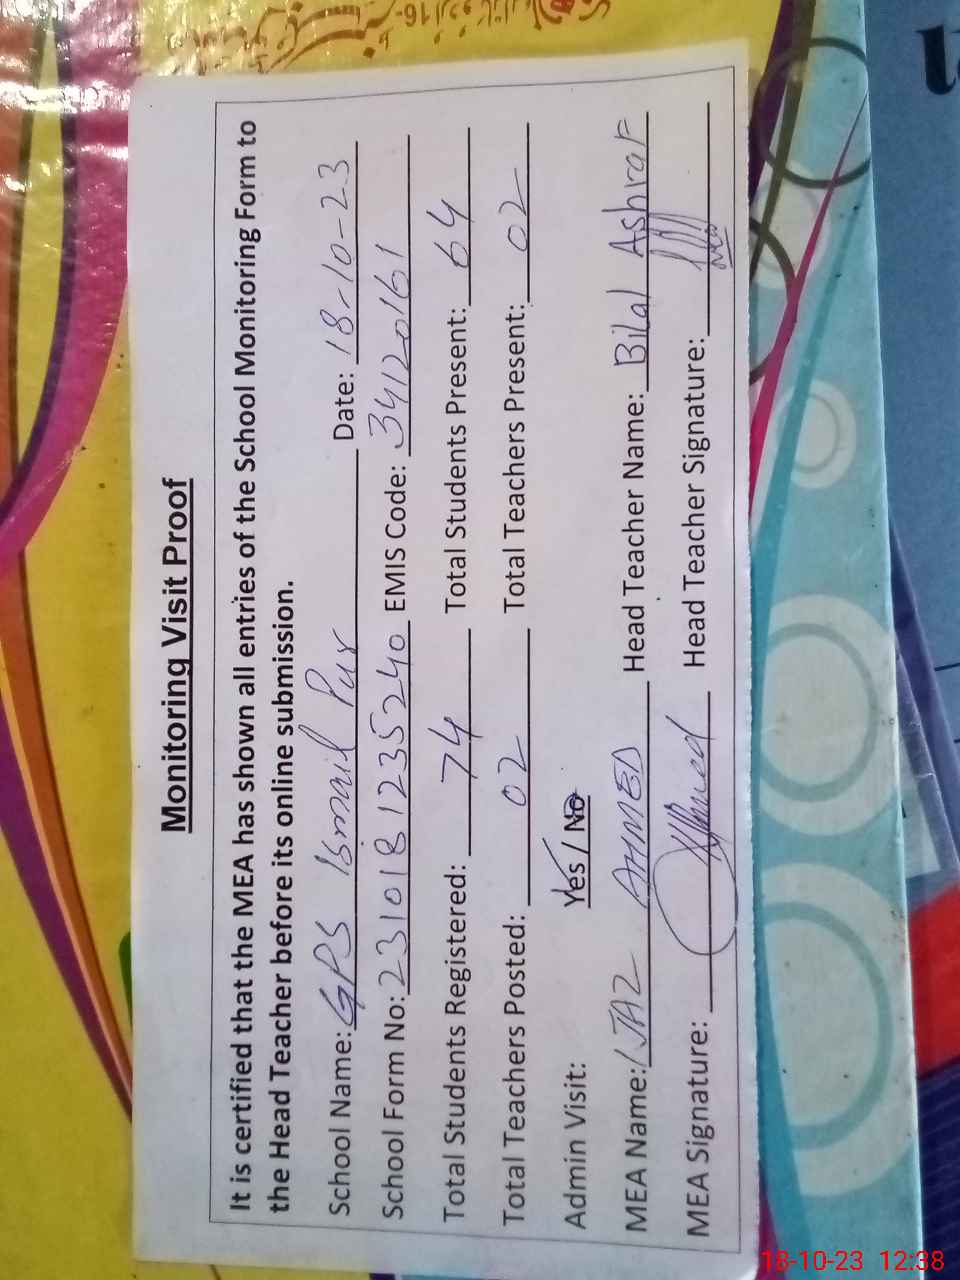 Monitoring Visit Proof
It is certified that the MEA has shown all entries of the School Monitoring Form to
the Head Teacher before its online submission.
School Name: GPS Ismail Pur Date: 18-10-23
School Form No: 2310181235240 EMIS Code: 34120161
Total Students Registered: 74 Total Students Present: 64
Total Teachers Posted: 02 Total Teachers Present: 02
Admin Visit: Yes / No
MEA Name: IJAZ AHMED Head Teacher Name: Bilal Ashraf
MEA Signature: Ahmed Head Teacher Signature:
18-10-23 12:38